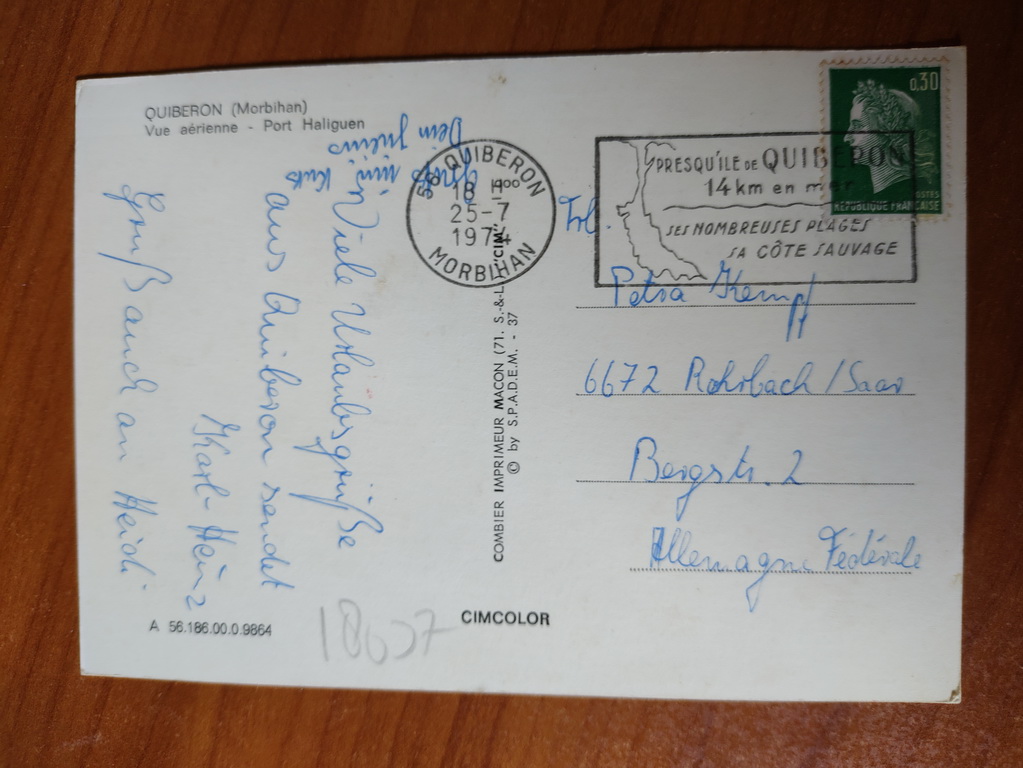 QUIBERON (Morbihan)
Vue aérienne - Port Haliguen
Viele Urlaubsgrüße
aus Quiberon sendet
Karl-Heinz
Gruß auch an Heidi
Dein
A 56.186.00.0.9864
18037
CIMCOLOR
COMBIER IMPRIMEUR MACON (71. S.-&-L. "CIM"
© by S.P.A.D.E.M. - 37
56 QUIBERON
18 H00
25-7
1974
MORBIHAN
PRESQU'ILE DE QUIBERON
14 km en mer
SES NOMBREUSES PLAGES
SA CÔTE SAUVAGE
0,30
POSTES
REPUBLIQUE FRANÇAISE
Frl.
Petra Kempf
6672 Rohrbach/Saar
Bergstr. 2
Allemagne Fédérale